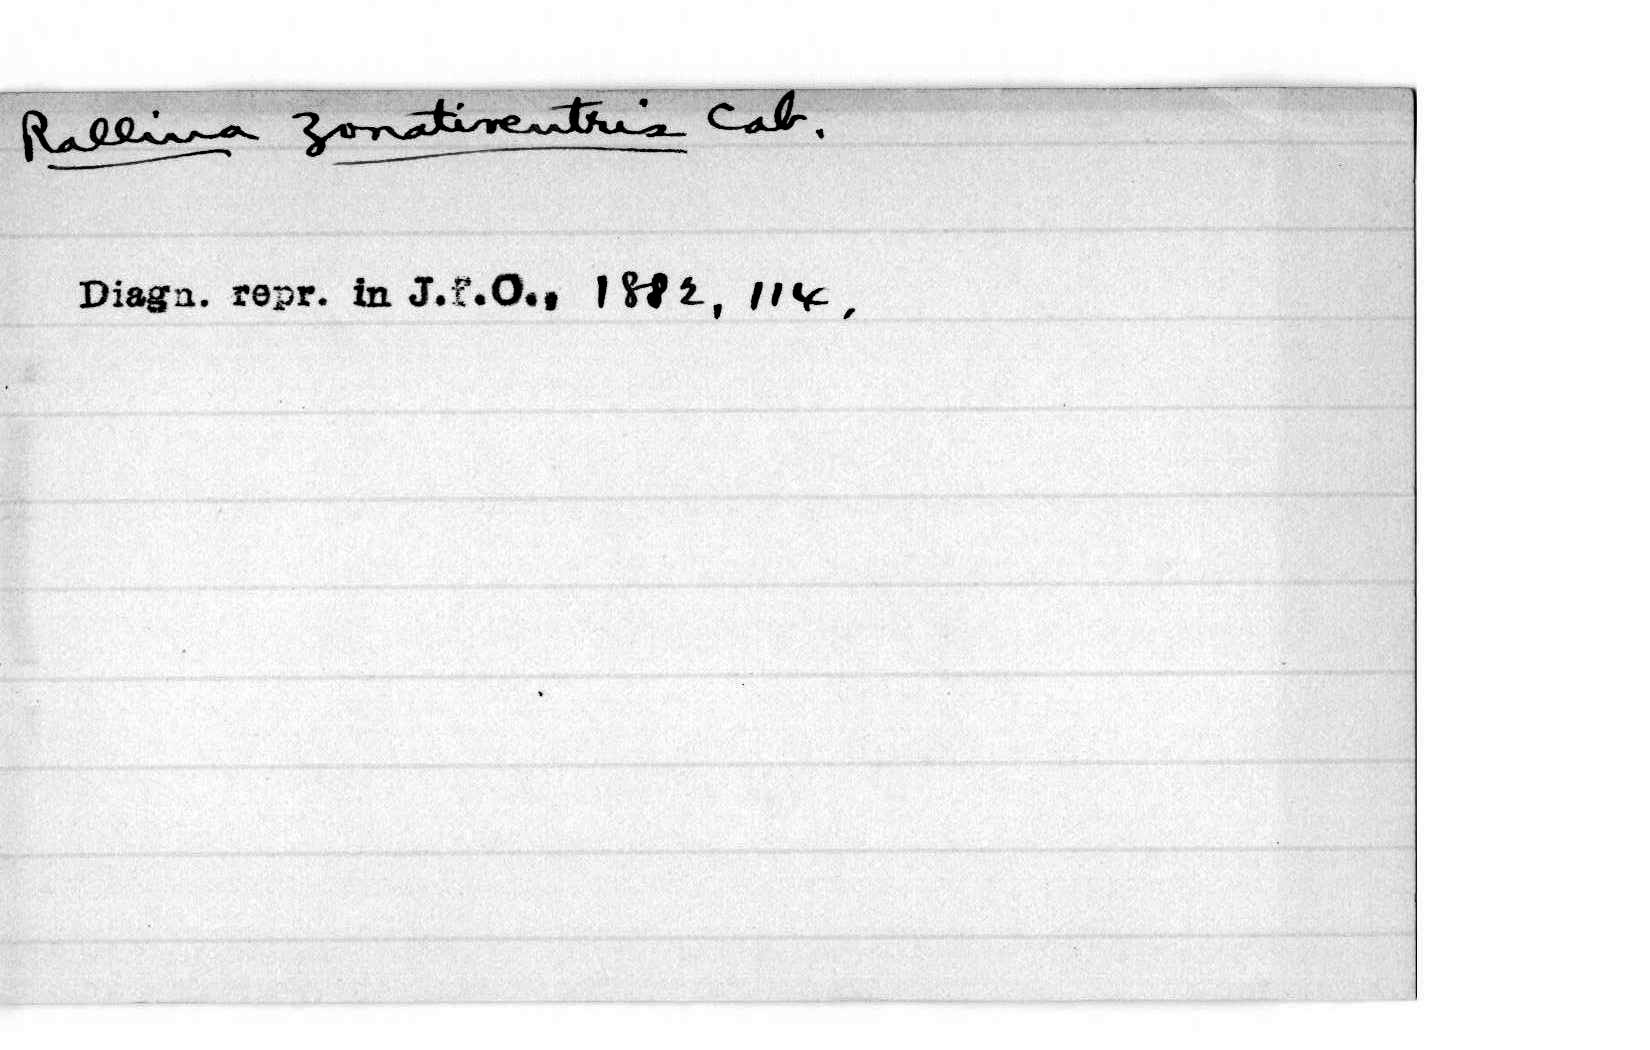 Rallina zonativentris Cab.
Diagn. repr. in J.f.O., 1882, 114,